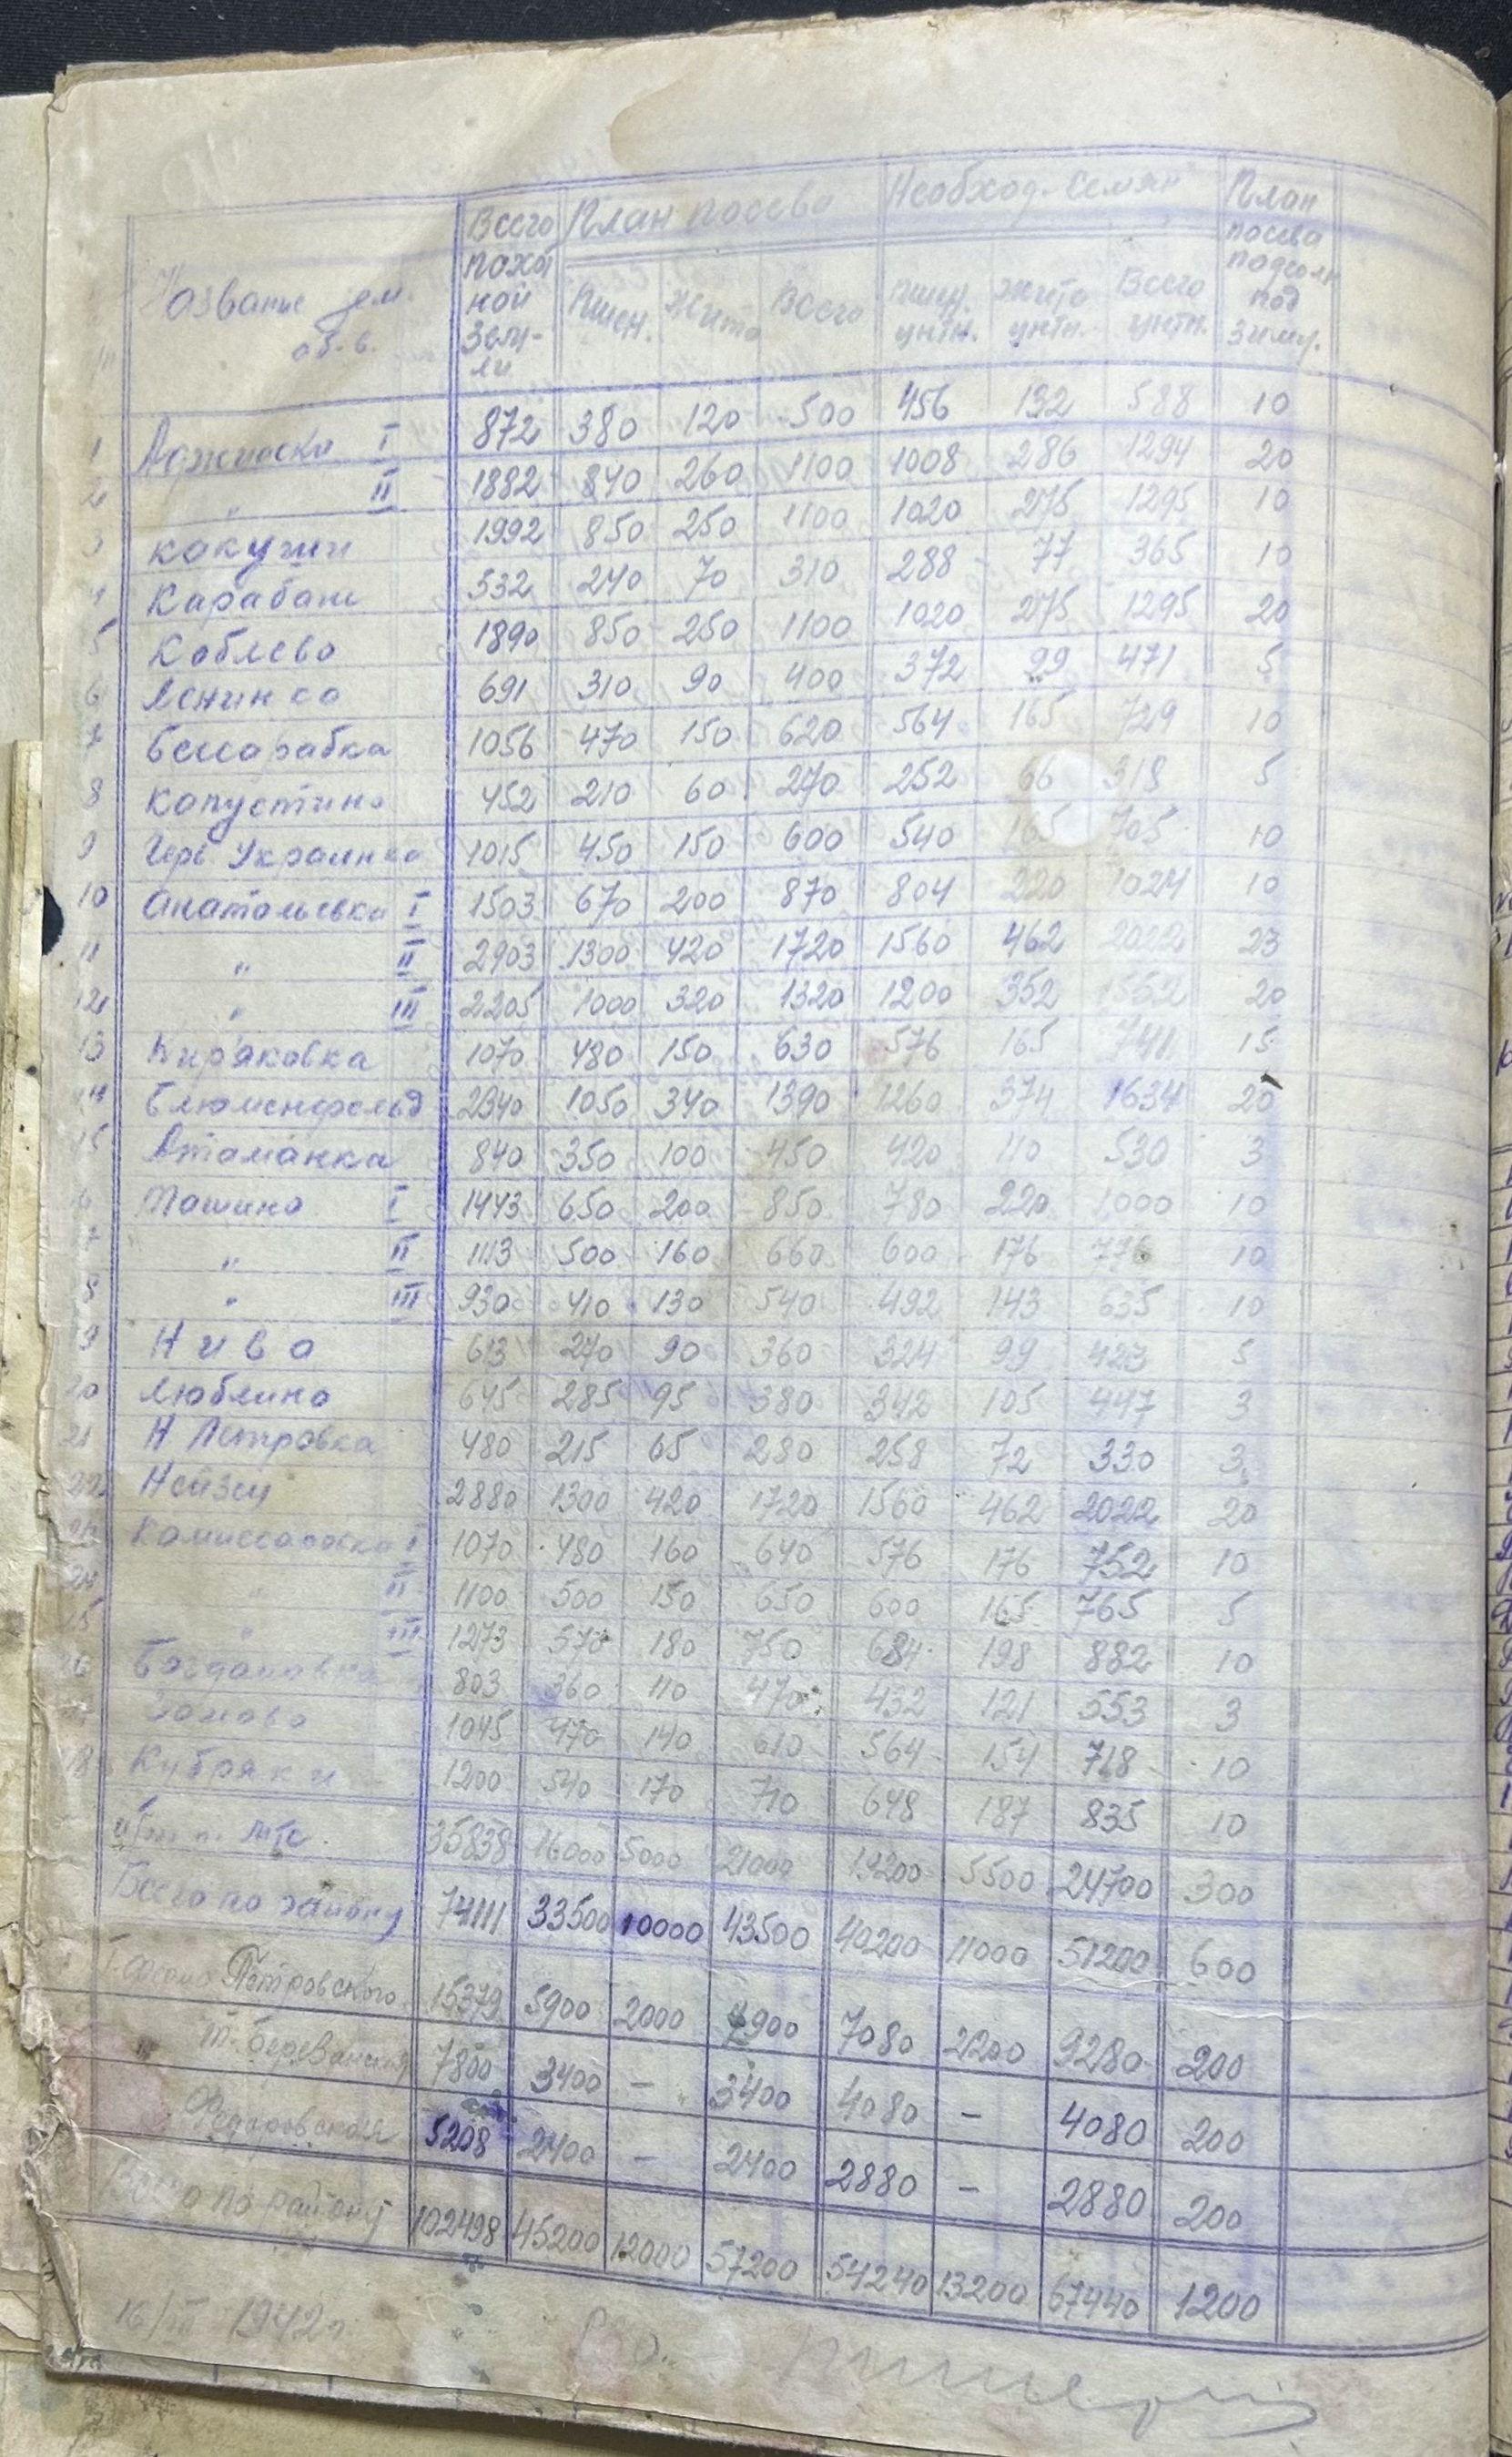 Название зем. об-в. Всего пахотной земли План посева Необход. семян План посева подсолн. под зиму.
Пшен. Жито Всего пшен. цнтн. жито цнтн. Всего цнтн.
1 Аджиаска I 872 380 120 500 456 132 588 10
2 " II 1882 840 260 1100 1008 286 1294 20
3 Какужи 1992 850 250 1100 1020 275 1295 10
4 Карабаш 532 240 70 310 288 77 365 10
5 Коблево 1890 850 250 1100 1020 275 1295 20
6 Ленинка 691 310 90 400 372 99 471 5
7 Бессарабка 1056 470 150 620 564 165 729 10
8 Капустино 452 210 60 270 252 66 318 5
9 Черв Украинка 1015 450 150 600 540 165 705 10
10 Анатольевка I 1503 670 200 870 804 220 1024 10
11 " II 2903 1300 420 1720 1560 462 2022 23
12 " III 2205 1000 320 1320 1200 352 1552 20
13 Киряковка 1070 480 150 630 576 165 741 15
14 Блюменфельд 2340 1050 340 1390 1260 374 1634 20
15 Атаманка 840 350 100 450 420 110 530 3
6 Ташино I 1443 650 200 850 780 220 1000 10
7 " II 1113 500 160 660 600 176 776 10
8 " III 930 410 130 540 492 143 635 10
9 Нива 613 270 90 360 324 99 423 5
20 Люблино 645 285 95 380 342 105 447 3
21 Н Петровка 480 215 65 280 258 72 330 3
22 Нейзац 2880 1300 420 1720 1560 462 2022 20
23 Комиссаровка I 1070 480 160 640 576 176 752 10
24 " II 1100 500 150 650 600 165 765 5
25 " III 1273 570 180 750 684 198 882 10
26 Богдановка 803 360 110 470 432 121 553 3
1045 470 140 610 564 154 718 10
28 Кубряки 1200 540 170 710 648 187 835 10
МТС. 35838 16000 5000 21000 19200 5500 24700 300
Всего по району 74111 33500 10000 43500 40200 11000 51200 600
Петровского 15379 5900 2000 7900 7080 2200 9280 200
Березанская 7800 3400 — 3400 4080 — 4080 200
Федоровская 5208 2400 — 2400 2880 — 2880 200
Всего по району 102498 45200 12000 57200 54240 13200 67440 1200
1942г.